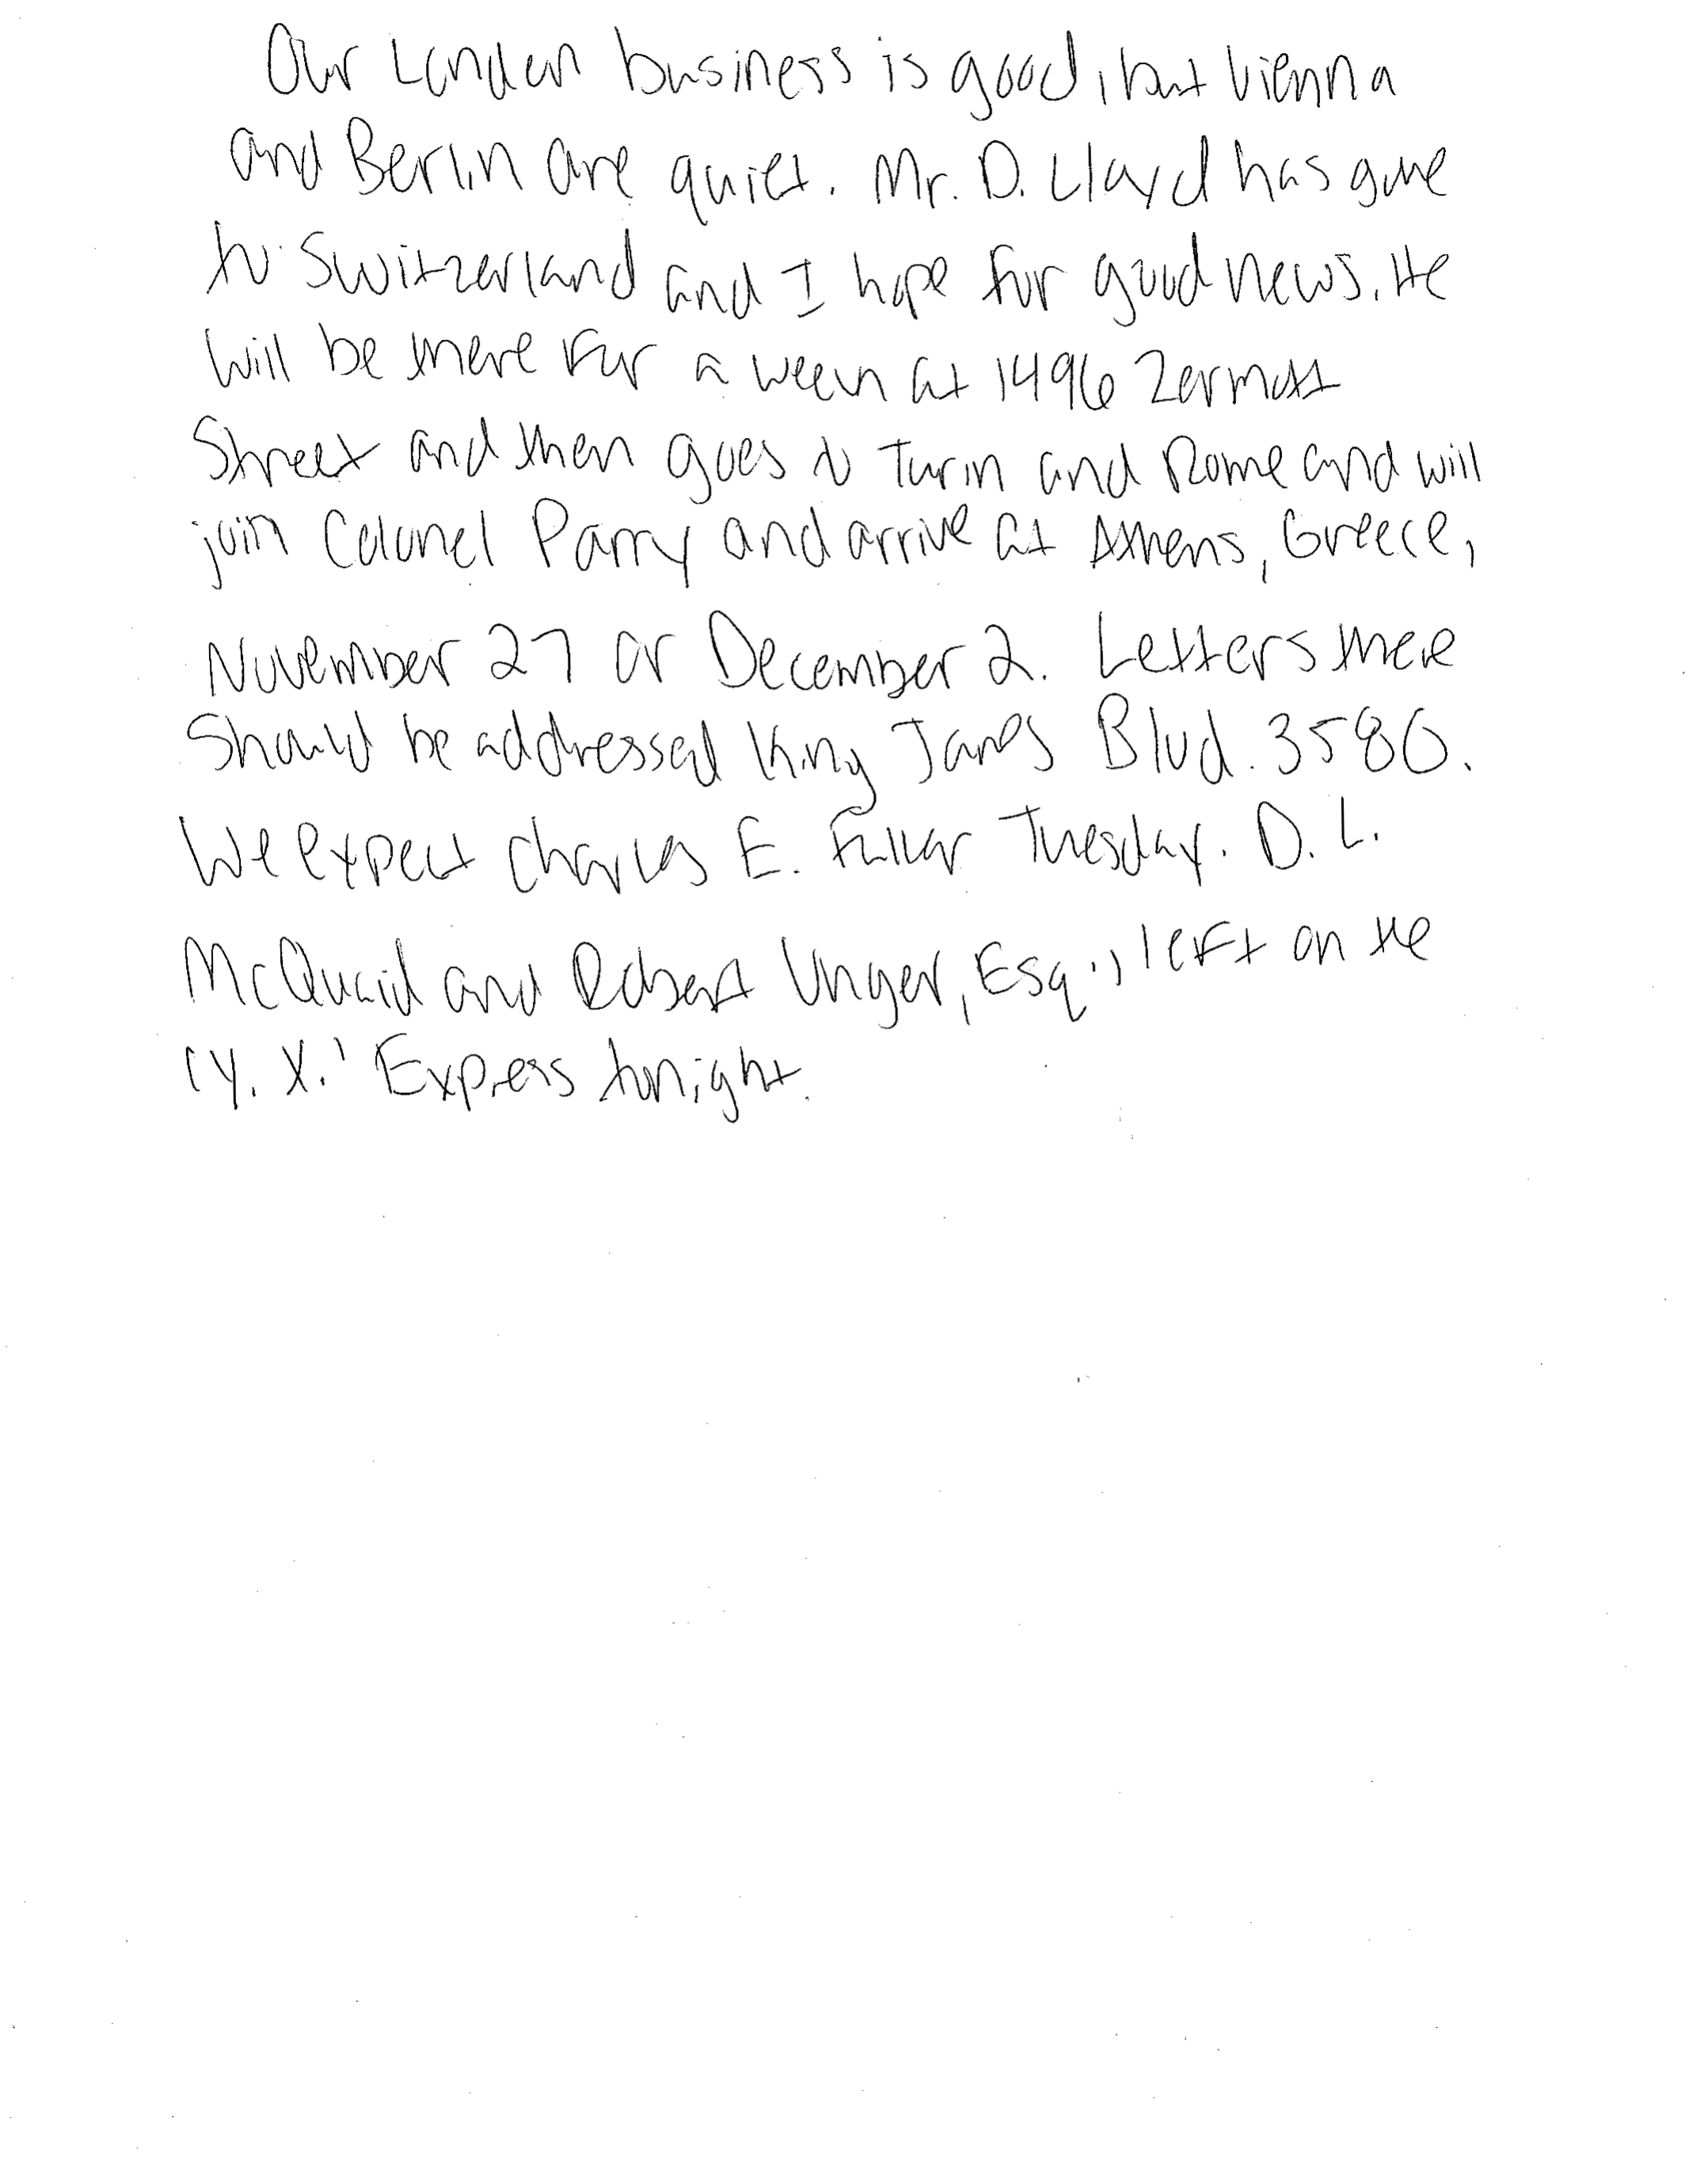 Our London business is good, but Vienna
and Berlin are quiet. Mr. D. Lloyd has gone
to Switzerland and I hope for good news. He
will be there for a week at 1496 Zermott
Street and then goes to Turin and Rome and will
join Colonel Parry and arrive at Athens, Greece,
November 27 or December 2. Letters there
should be addressed King James Blvd. 3580.
We expect Charles E. Fuller Tuesday. D. L.
McQuaid and Robert Unger, Esq., left on the
'Y. X.' Express tonight.